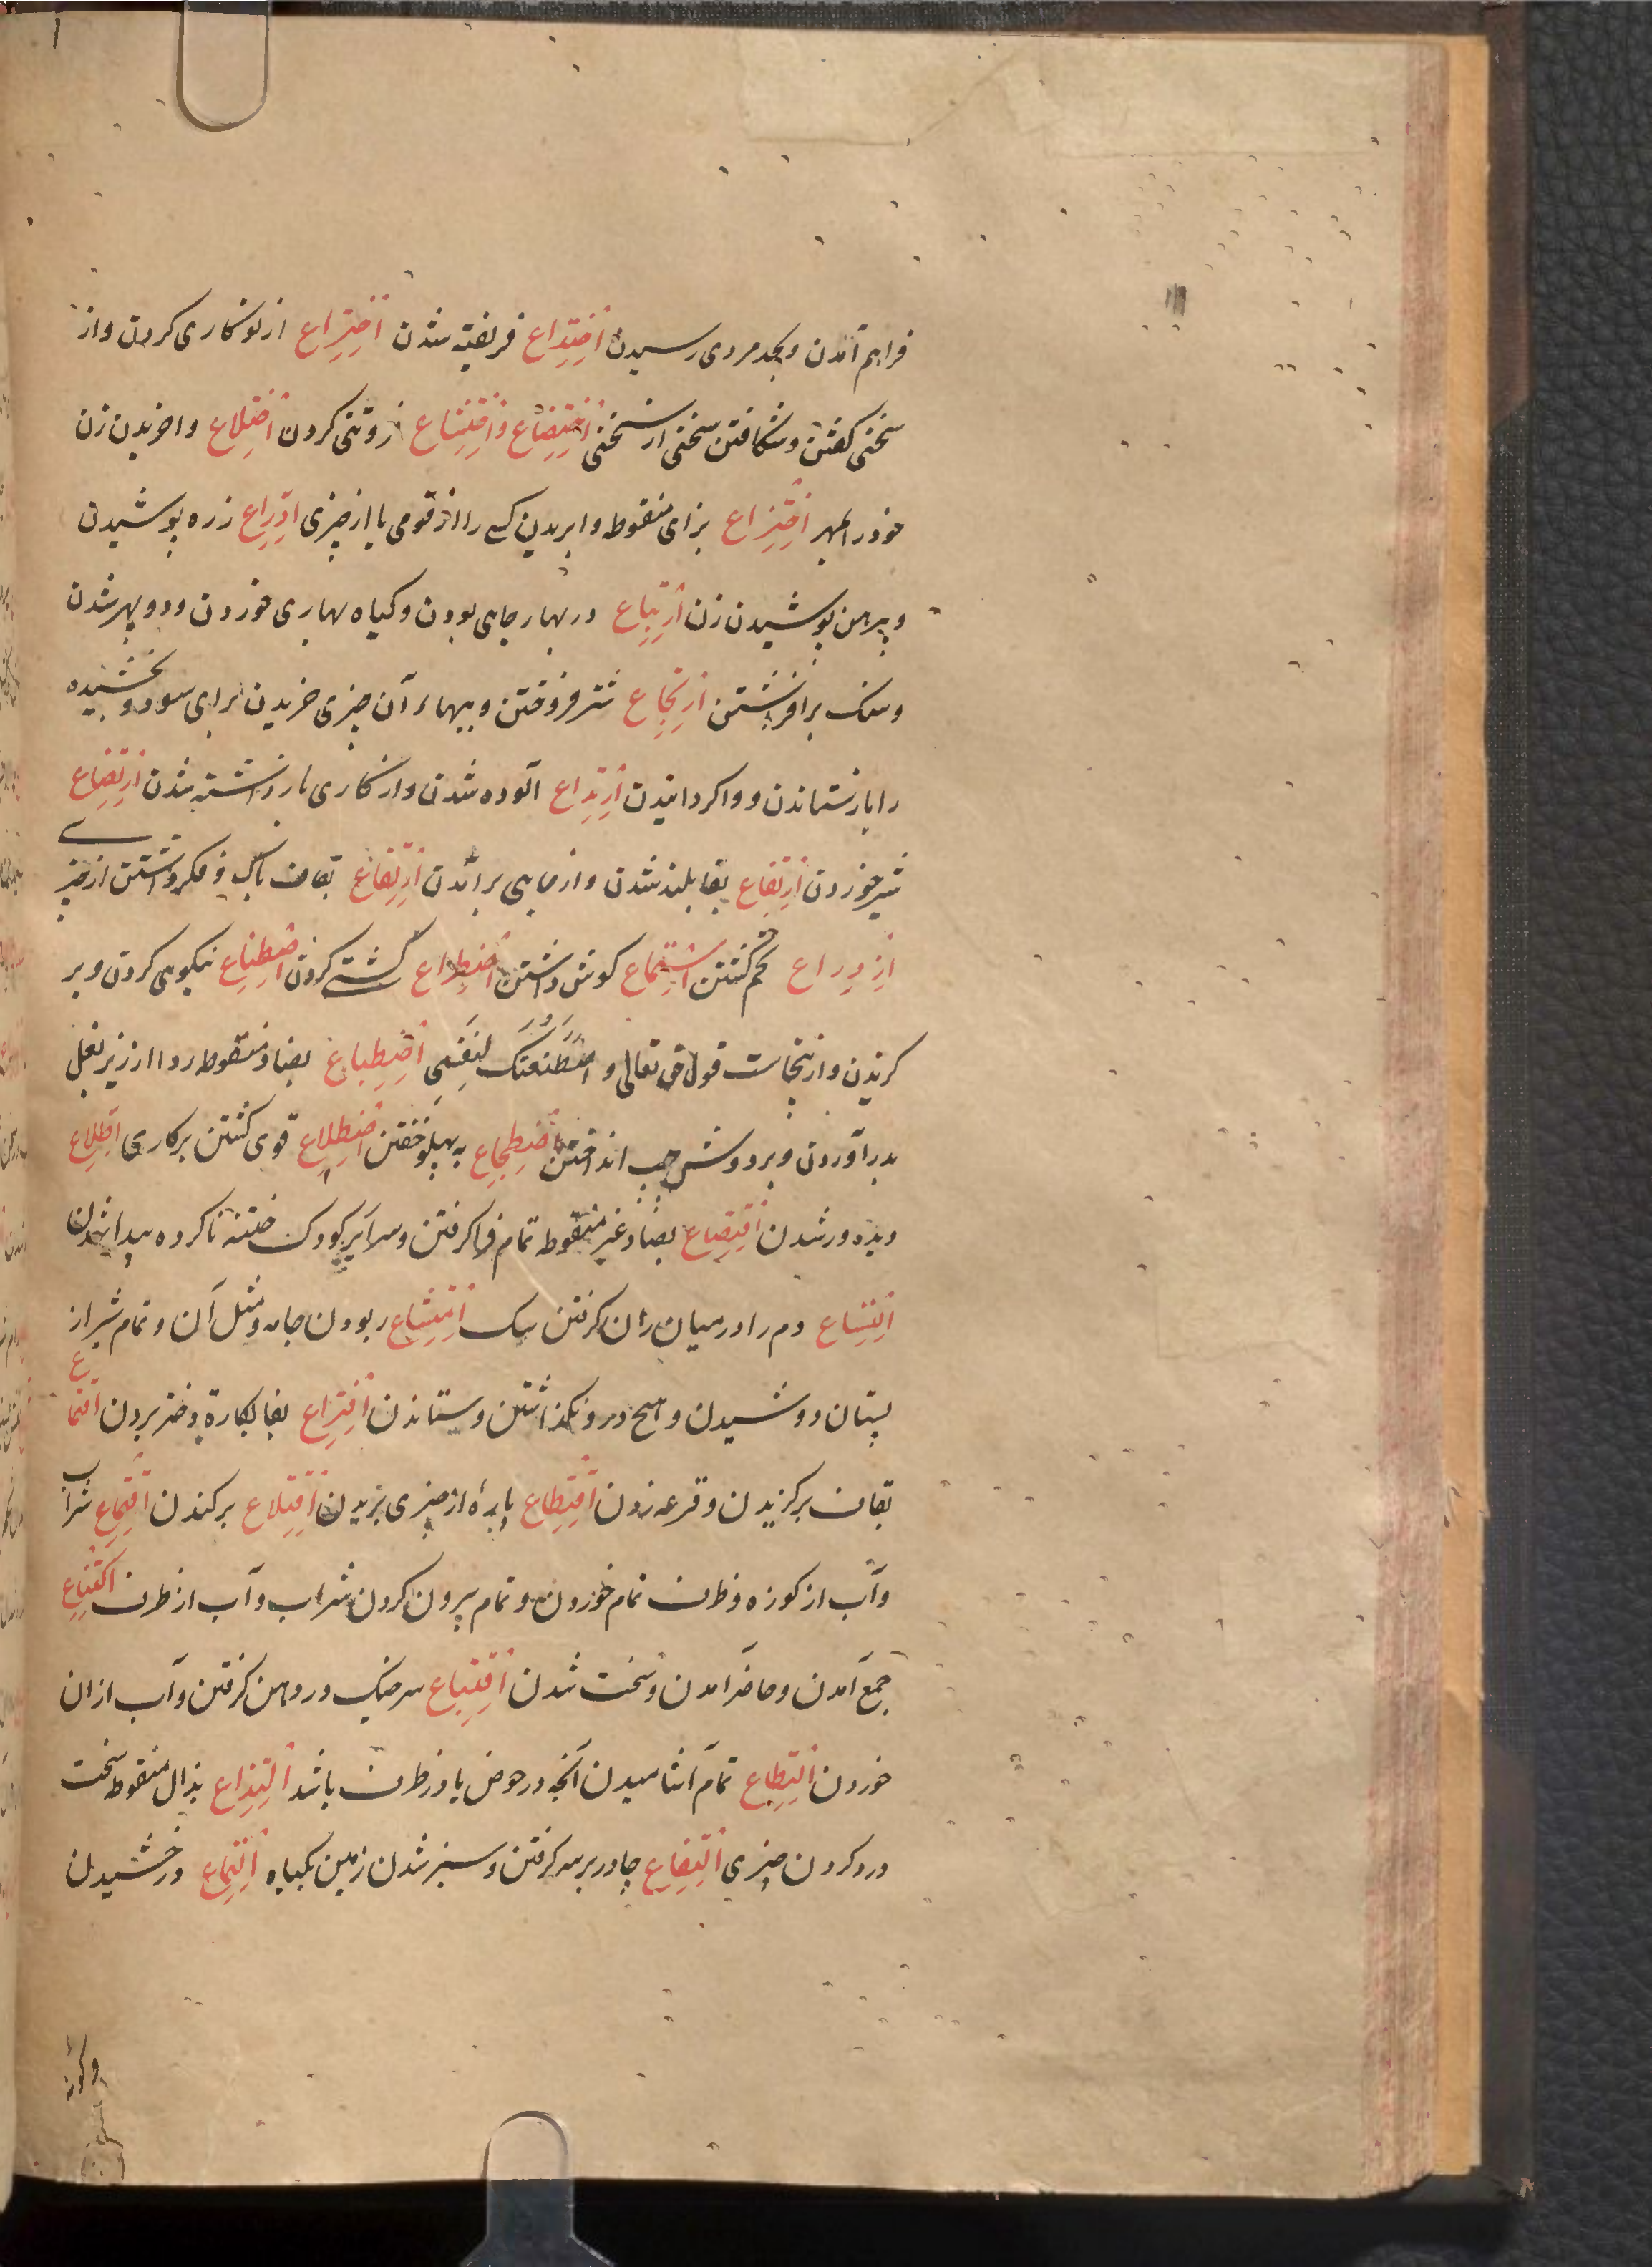 فراهم آمدن وبحد مردی رسیدن اِختِداع فریفته شدن اِختِراع از نو کاری کردن واز
سخنی کفتن وشکافتن سخنی از سخنی اِختِضاع واِختِشاع فروتنی کردن اِختِلاع واخریدن زن
خود را بمهر اِختِزاع بزای منقوطه وابریدن کسی را از قومی یا از چیزی اِدِّراع زره پوشیدن
وپیرهن پوشیدن زن اِرتِباع در بهار جایی بودن وکیاه بهاری خوردن ودوپهر شدن
وسنک برافراشتن اِرتِجاع شتر فروختن وببهاء آن چیزی خریدن برای سود وبخشیده
را بازستاندن وواکردانیدن اِرتِداع آلوده شدن واز کاری بازداشته شدن اِرتِضاع
شیر خوردن اِرتِفاع بفا بلند شدن واز جایی برآمدن اِرتِقاع بقاف باک وفکر داشتن از چیزی
اِزدِراع تخم کشتن اِستِماع کوش داشتن اِصطِراع کشتی کردن اِصطِناع نیکویی کردن وبر
کزیدن وازینجاست قول حق تعالی واصْطَنَعتُکَ لِنَفْسِی اِضطِباع بضاد منقوطه ردا از زیر بغل
بدر آوردن وبر دوش چپ انداختن اِضطِجاع به پهلو خفتن اِضطِلاع قوی کشتن بر کاری اِطِّلاع
دیده ور شدن اِقتِصاع بصاد غیر منقوطه تمام فرا کرفتن وسر ایر کودک ختنه ناکرده پیدا شدن
اِکتِساع دم را در میان ران کرفتن سک اِمتِشاع ربودن جامه ومثل آن وتمام شیر از
پستان دوشیدن وهیچ درو نکذاشتن وستاندن اِفتِراع بفا بکارة دختر بردن اِقتِراع
بقاف برکزیدن وقرعه زدن اِقتِطاع پارهٔ از چیزی بریدن اِقتِلاع برکندن اِقتِماع شراب
وآب از کوزه وظرف تمام خوردن وتمام بیرون کردن شراب وآب از ظرف اِکتِناع
جمع آمدن وحاضر آمدن وسخت شدن اِقتِباع سر خیک در دهن کرفتن وآب از ان
خوردن اِلتِطاع تمام آشامیدن آنچه در حوض یا در ظرف باشد اِلتِذاع بذال منقوطه سخت
درد کردن چیزی اِلتِفاع چادر بر سر کرفتن وسبز شدن زمین بکیاه اِلتِماع درخشیدن
وکونه